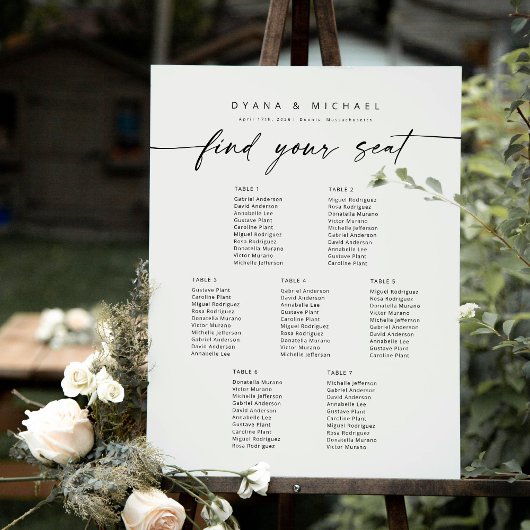 DYANA & MICHAEL
April 17th, 2026 | Dennis, Massachusetts
find your seat
TABLE 1
Gabriel Anderson
David Anderson
Annabelle Lee
Gustave Plant
Caroline Plant
Miguel Rodriguez
Rosa Rodriguez
Donatella Murano
Victor Murano
Michelle Jefferson
TABLE 2
Miguel Rodriguez
Rosa Rodriguez
Donatella Murano
Victor Murano
Michelle Jefferson
Gabriel Anderson
David Anderson
Annabelle Lee
Gustave Plant
Caroline Plant
TABLE 3
Gustave Plant
Caroline Plant
Miguel Rodriguez
Rosa Rodriguez
Donatella Murano
Victor Murano
Michelle Jefferson
Gabriel Anderson
David Anderson
Annabelle Lee
TABLE 4
Gabriel Anderson
David Anderson
Annabelle Lee
Gustave Plant
Caroline Plant
Miguel Rodriguez
Rosa Rodriguez
Donatella Murano
Victor Murano
Michelle Jefferson
TABLE 5
Miguel Rodriguez
Rosa Rodriguez
Donatella Murano
Victor Murano
Michelle Jefferson
Gabriel Anderson
David Anderson
Annabelle Lee
Gustave Plant
Caroline Plant
TABLE 6
Donatella Murano
Victor Murano
Michelle Jefferson
Gabriel Anderson
David Anderson
Annabelle Lee
Gustave Plant
Caroline Plant
Miguel Rodriguez
Rosa Rodriguez
TABLE 7
Michelle Jefferson
Gabriel Anderson
David Anderson
Annabelle Lee
Gustave Plant
Caroline Plant
Miguel Rodriguez
Rosa Rodriguez
Donatella Murano
Victor Murano